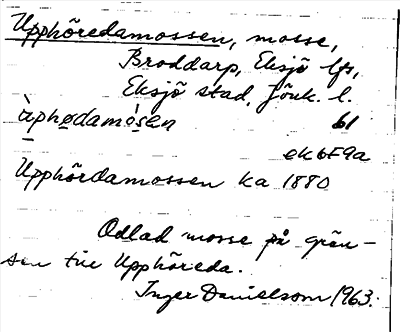 Upphöredamossen, mosse,
Broddarp, Eksjö lfs,
Eksjö stad, Jönk. l.
ùphødamósen 61
ek 6F9a
Upphördamossen ka 1880
Odlad mosse på grän-
sen till Upphöreda.
Inger Danielsson 1963.